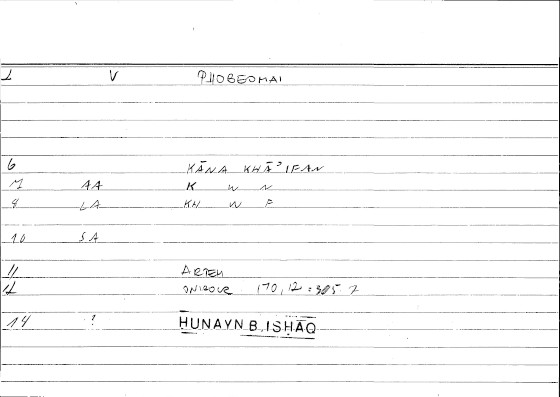 1 V PHOBEOMAI
6 KĀNA KHĀʾIFAN
M AA K W N
9 LA KH W F
10 SA
11 ARTEM
12 ONIROCR 170,12 = 305 7
14 ? HUNAYN B. ISHĀQ